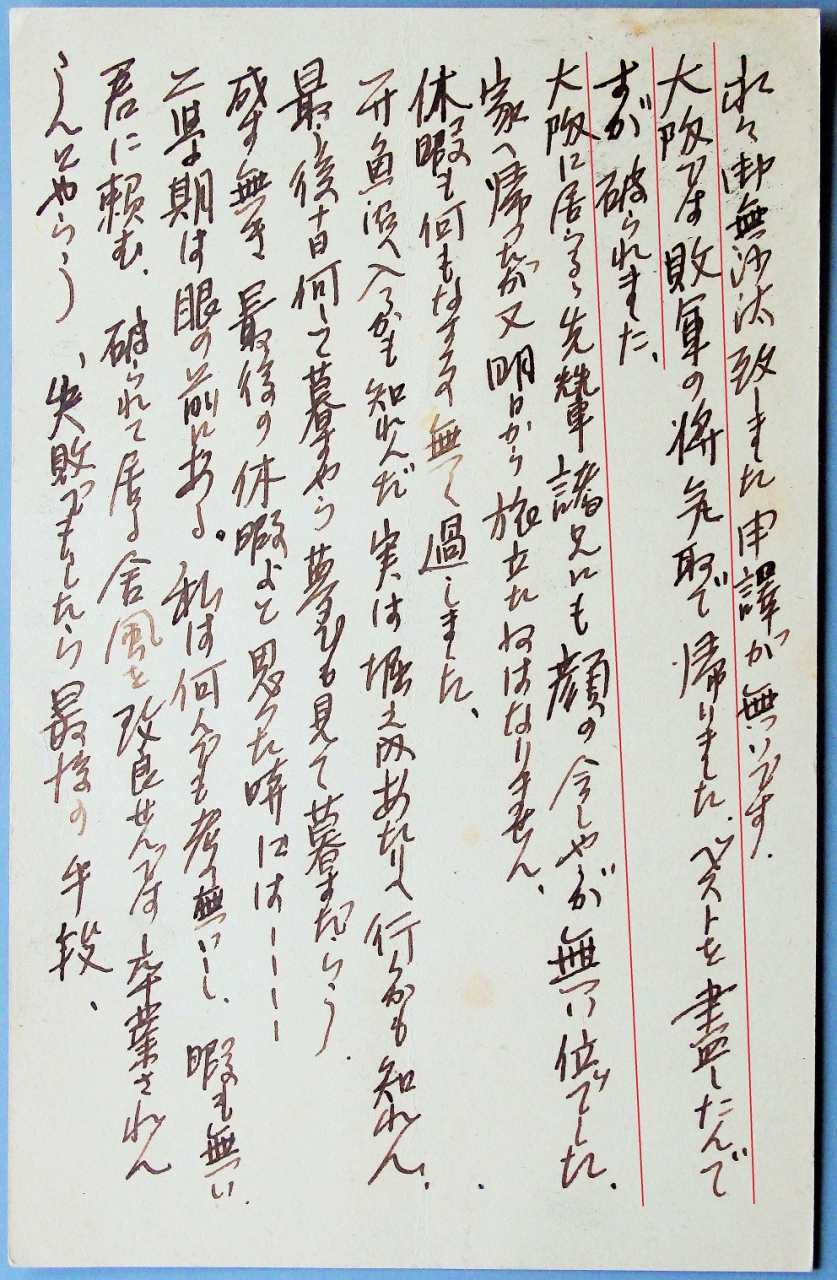 永々御無沙汰致しました申譯が無いです.
大阪では敗軍の将気取で帰りました、ベストを盡したんで
すが破られました、
大阪に居らるゝ先輩諸兄にも顔の合しやうが無い位でした.
家へ帰つたが又明日から旅立たねばなりません、
休暇も何もなすなく過しました、
入るかも知れんだ実は堀之内あたりへ行くかも知れん.
最う後十日何して暮すやら夢でも見て暮すだらう.
成す無き最後の休暇よと思つた時には————
二学期は眼の前にある。私は何んにも考へ無いし、暇も無い.
君に頼む、破られて居る舎風を改良せんでは卒業されん
うんとやらう、失敗でもしたら最後の手段、